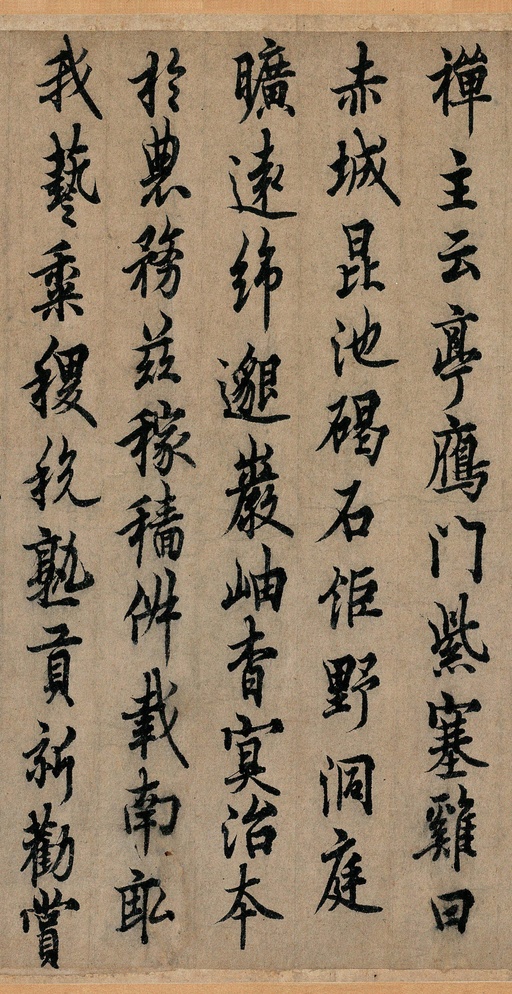 禪主云亭鴈門紫塞雞田
赤城昆池碣石鉅野洞庭
曠遠綿邈巖岫杳冥治本
於農務茲稼穡俶載南畝
我藝黍稷稅熟貢新勸賞